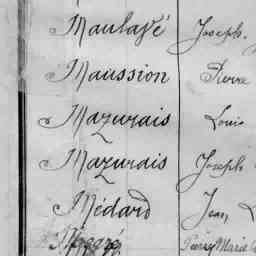 Maulavé Joseph
Maussion Pierre
Mazurais Louis
Mazurais Joseph
Médard Jean
Pierre Marie